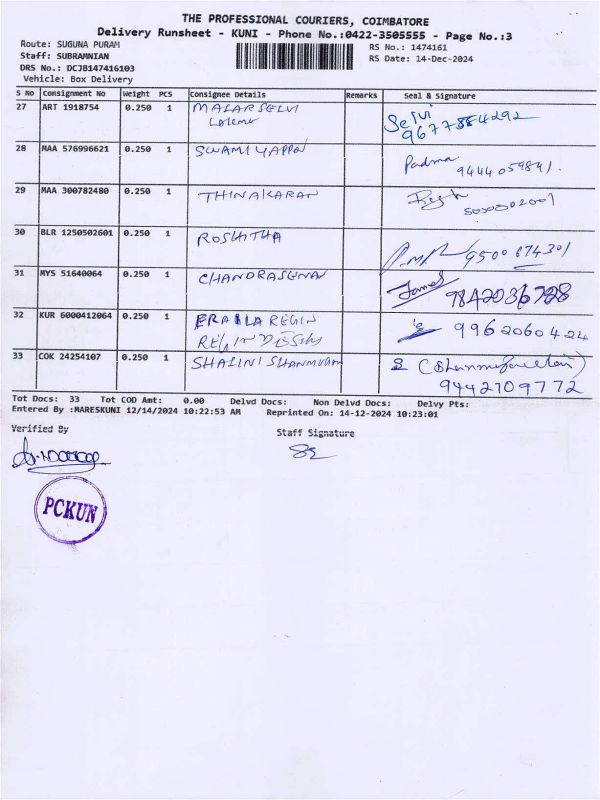 THE PROFESSIONAL COURIERS, COIMBATORE
Delivery Runsheet - KUNI - Phone No.:0422-3505555 - Page No.:3
Route: SUGUNA PURAM
RS No.: 1474161
Staff: SUBRAMNIAN
RS Date: 14-Dec-2024
DRS No.: DCJB147416103
Vehicle: Box Delivery
S No Consignment No Weight PCS Consignee Details Remarks Seal & Signature
27 ART 1918754 0.250 1 MALARSELVI Selvi
28 MAA 576996621 0.250 1 SWAMIYAPPA Padma
9444059841.
29 MAA 300782480 0.250 1 THINAKARAN
30 BLR 1250502601 0.250 1 ROSHITHA 9500674301
31 MYS 51640064 0.250 1 CHANDRASENAN James
32 KUR 6000412064 0.250 1 REGIN 9962060424
33 COK 24254107 0.250 1 SHALINI SHANMUGAM
9442109772
Tot Docs: 33 Tot COD Amt: 0.00 Delvd Docs: Non Delvd Docs: Delvy Pts:
Entered By :MARESKUNI 12/14/2024 10:22:53 AM Reprinted On: 14-12-2024 10:23:01
Verified By
Staff Signature
PCKUN